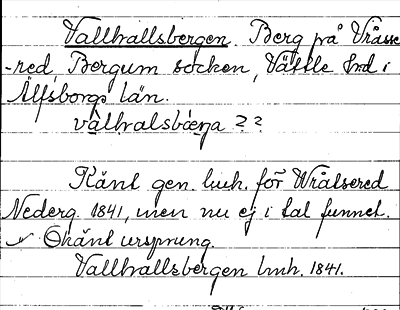 Vallhallsbergen. Berg på Vråsse
-red, Bergum socken, Vättle hrd i
Älfsborgs län.
vàlhralsbærja ??
Känt gen. lmh. för Wråtsered
Nederg. 1841, men nu ej i tal funnet.
Okänt ursprung.
Vallhallsbergen lmh. 1841.